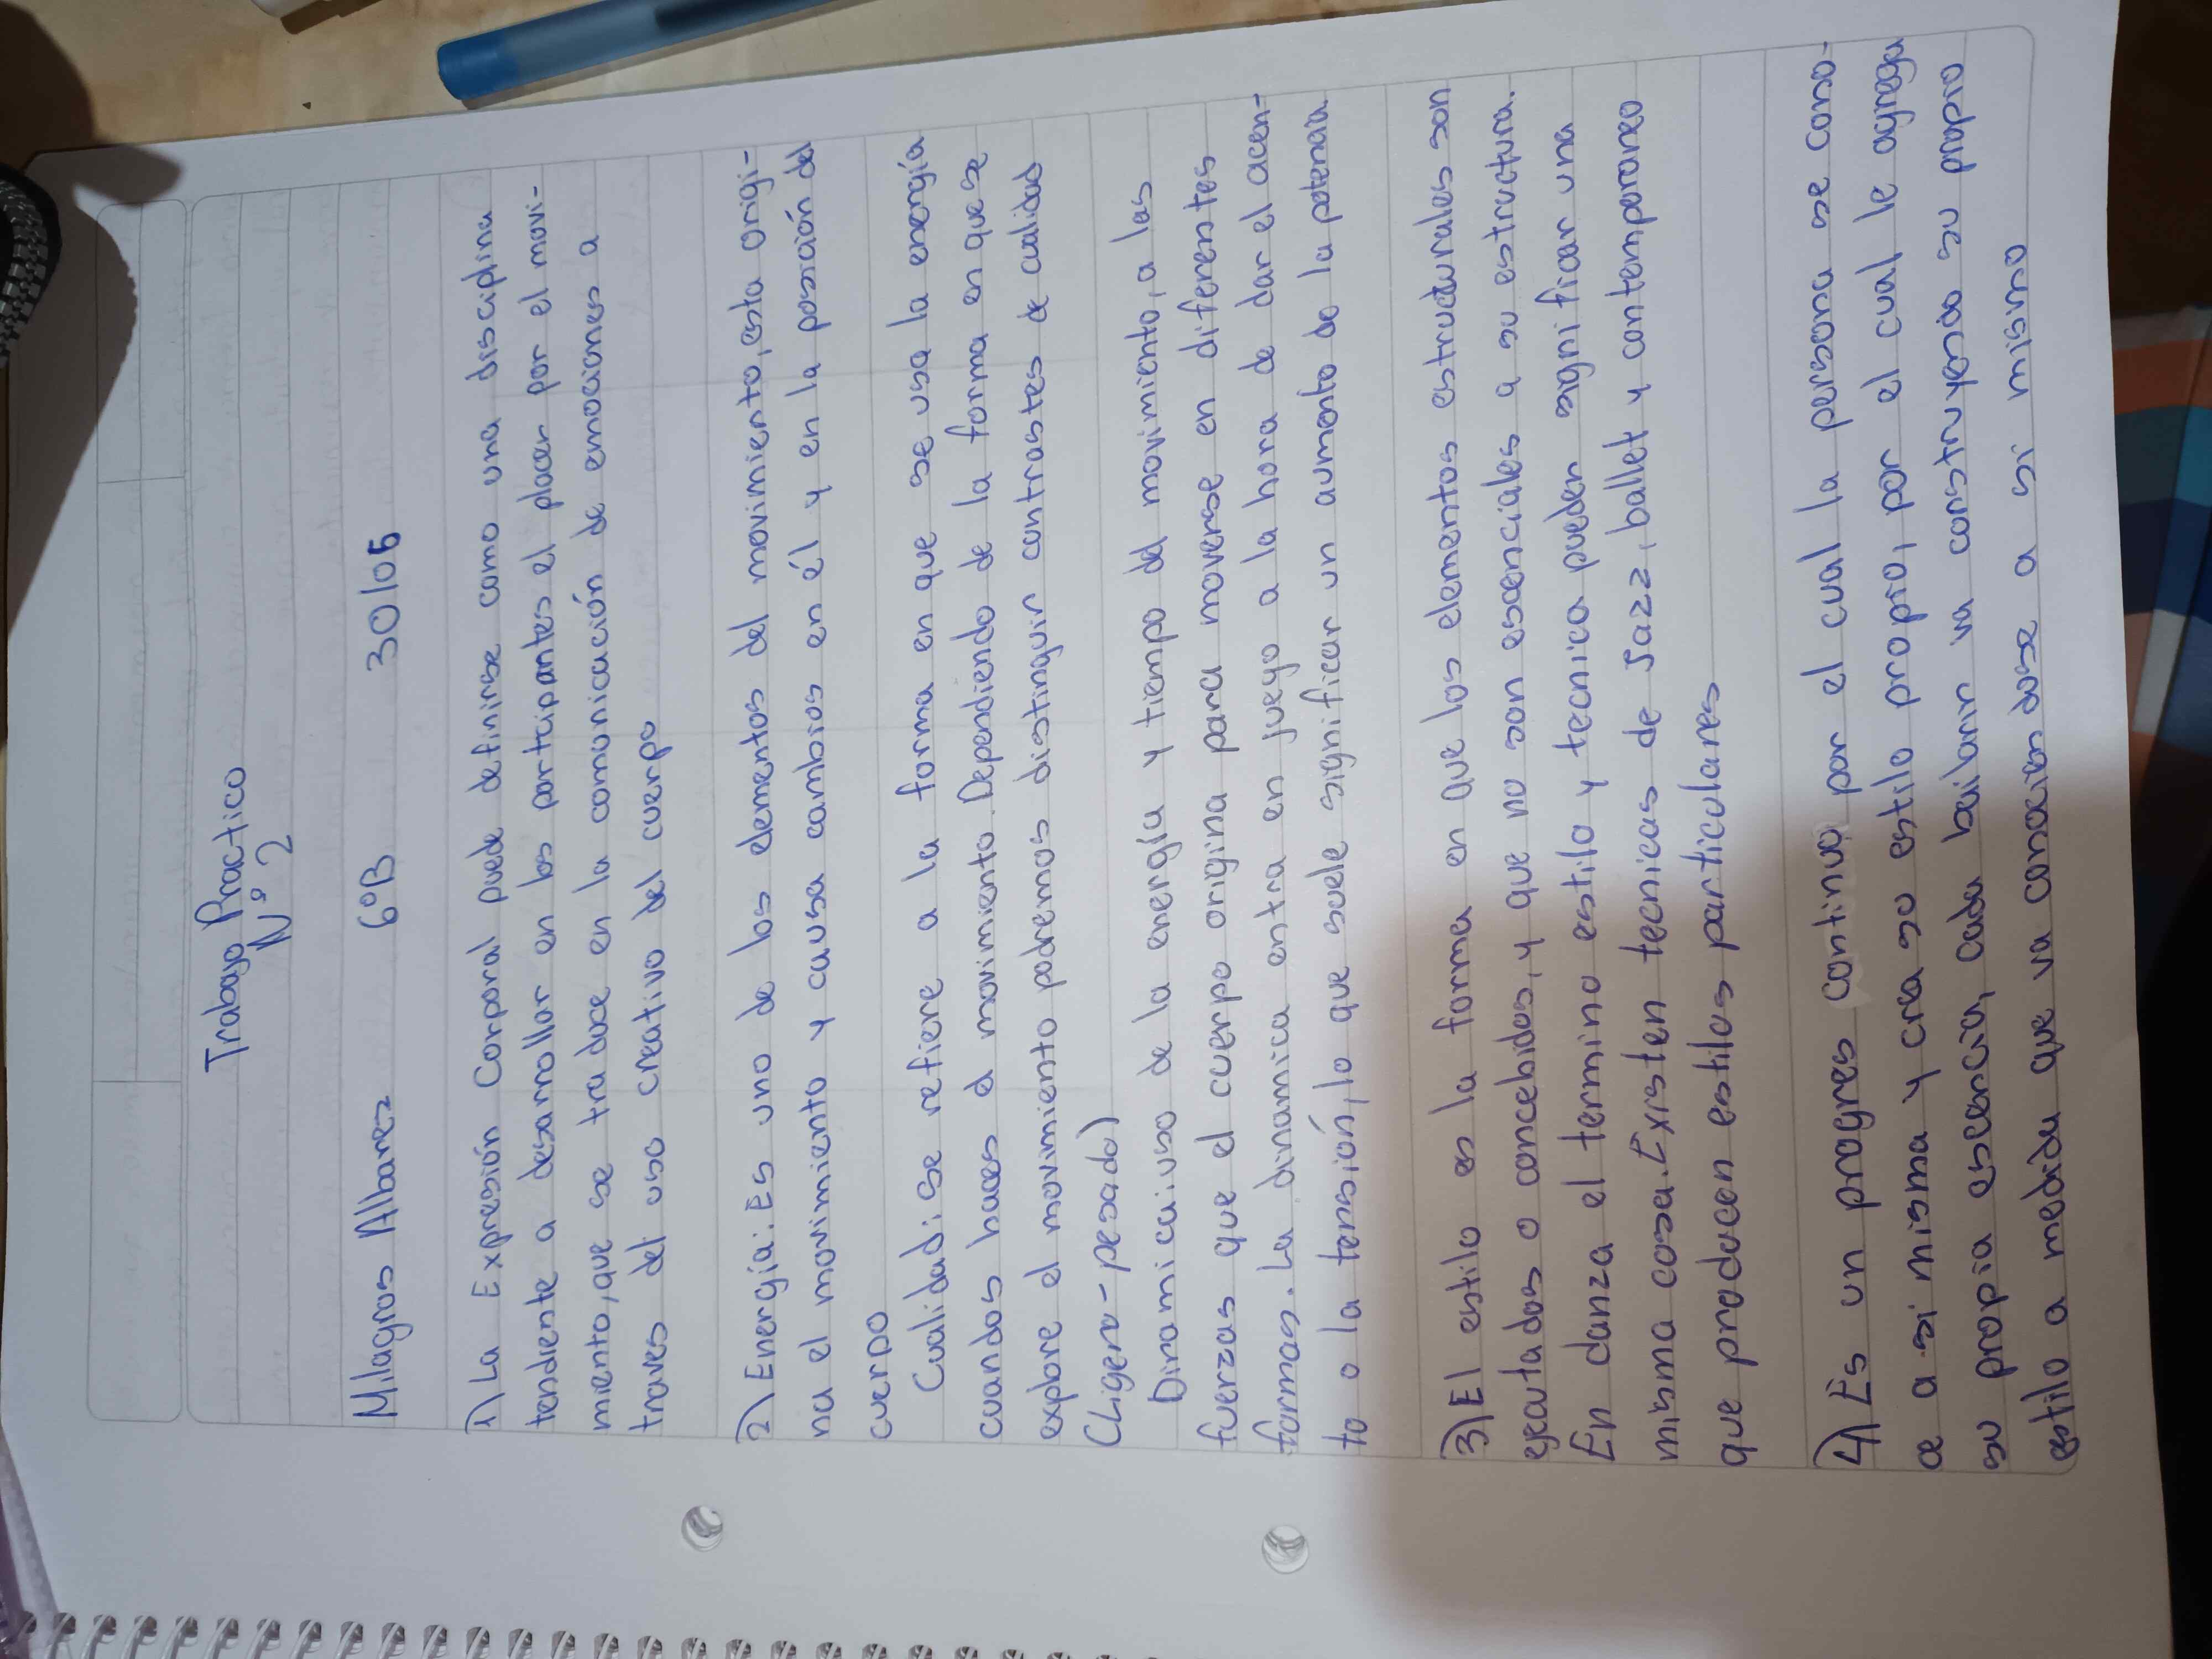 Trabajo Practico
N° 2
Milagros Albarez 6°B 30/05
1) La Expresión Corporal puede definirse como una disciplina
tendiente a desarrollar en los participantes el placer por el movi-
miento, que se traduce en la comunicación de emociones a
traves del uso creativo del cuerpo
2) Energía: Es uno de los elementos del movimiento, esta origi-
na el movimiento y causa cambios en él y en la posición del
cuerpo
Cualidad: se refiere a la forma en que se usa la energía
cuandos haces el movimiento. Dependiendo de la forma en que se
explore el movimiento podremos distinguir contrastes de calidad
(Ligero-pesado)
Dinamica: uso de la energía y tiempo del movimiento, a las
fuerzas que el cuerpo origina para moverse en diferentes
formas. La dinamica entra en juego a la hora de dar el acen-
to o la tensión, lo que suele significar un aumento de la potencia
3) El estilo es la forma en que los elementos estructurales son
ejecutados o concebidos, y que no son esenciales a su estructura.
En danza el termino estilo y tecnica pueden significar una
misma cosa. Existen tecnicas de Jazz, ballet y contemporaneo
que producen estilos particulares
4) Es un progres continuo, por el cual la persona se cono-
ce a si misma y crea su estilo propio, por el cual le agrega
su propia escencia, cada bailarin va construyendo su propio
estilo a medida que va conociendose a si mismo